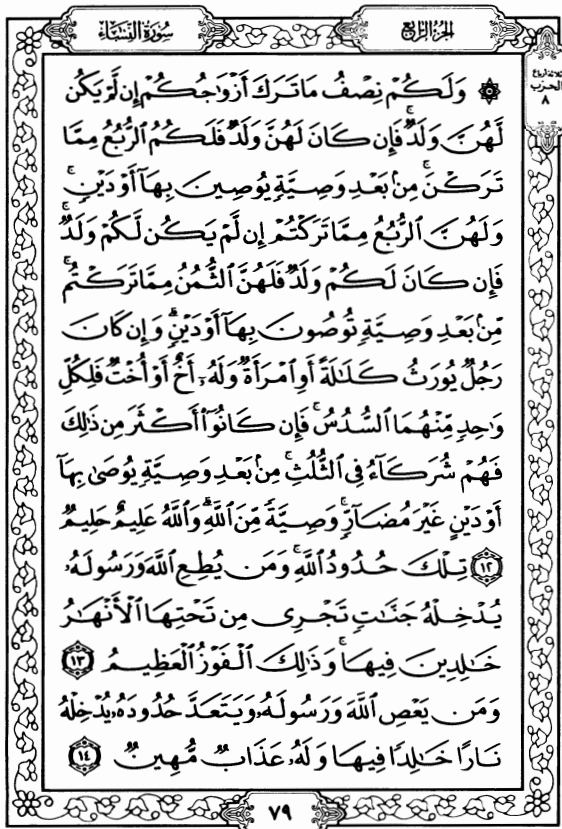 الجزء الرابع
سورة النساء
ثلاثة أرباع
الحزب
٨
۞ وَلَكُمْ نِصْفُ مَا تَرَكَ أَزْوَٰجُكُمْ إِن لَّمْ يَكُن
لَّهُنَّ وَلَدٌ ۚ فَإِن كَانَ لَهُنَّ وَلَدٌ فَلَكُمُ ٱلرُّبُعُ مِمَّا
تَرَكْنَ ۚ مِنۢ بَعْدِ وَصِيَّةٍ يُوصِينَ بِهَآ أَوْ دَيْنٍ ۚ
وَلَهُنَّ ٱلرُّبُعُ مِمَّا تَرَكْتُمْ إِن لَّمْ يَكُن لَّكُمْ وَلَدٌ ۚ
فَإِن كَانَ لَكُمْ وَلَدٌ فَلَهُنَّ ٱلثُّمُنُ مِمَّا تَرَكْتُم ۚ
مِّنۢ بَعْدِ وَصِيَّةٍ تُوصُونَ بِهَآ أَوْ دَيْنٍ ۗ وَإِن كَانَ
رَجُلٌ يُورَثُ كَلَٰلَةً أَوِ ٱمْرَأَةٌ وَلَهُۥٓ أَخٌ أَوْ أُخْتٌ فَلِكُلِّ
وَٰحِدٍ مِّنْهُمَا ٱلسُّدُسُ ۚ فَإِن كَانُوٓا۟ أَكْثَرَ مِن ذَٰلِكَ
فَهُمْ شُرَكَآءُ فِى ٱلثُّلُثِ ۚ مِنۢ بَعْدِ وَصِيَّةٍ يُوصَىٰ بِهَآ
أَوْ دَيْنٍ غَيْرَ مُضَآرٍّ ۚ وَصِيَّةً مِّنَ ٱللَّهِ ۗ وَٱللَّهُ عَلِيمٌ حَلِيمٌ
١٢ تِلْكَ حُدُودُ ٱللَّهِ ۚ وَمَن يُطِعِ ٱللَّهَ وَرَسُولَهُۥ
يُدْخِلْهُ جَنَّٰتٍ تَجْرِى مِن تَحْتِهَا ٱلْأَنْهَٰرُ
خَٰلِدِينَ فِيهَا ۚ وَذَٰلِكَ ٱلْفَوْزُ ٱلْعَظِيمُ ١٣
وَمَن يَعْصِ ٱللَّهَ وَرَسُولَهُۥ وَيَتَعَدَّ حُدُودَهُۥ يُدْخِلْهُ
نَارًا خَٰلِدًا فِيهَا وَلَهُۥ عَذَابٌ مُّهِينٌ ١٤
٧٩